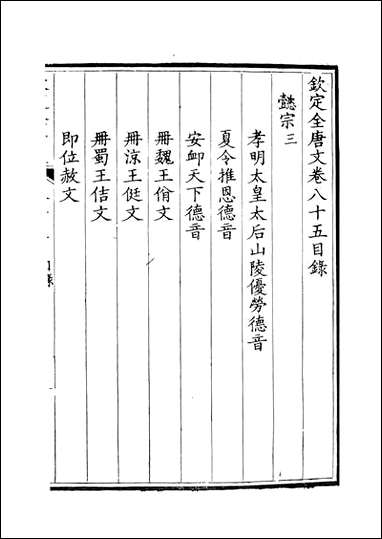 欽定全唐文卷八十五目錄
懿宗三
孝明太皇太后山陵優勞德音
夏令推恩德音
安卹天下德音
冊魏王佾文
冊涼王侹文
冊蜀王佶文
即位赦文